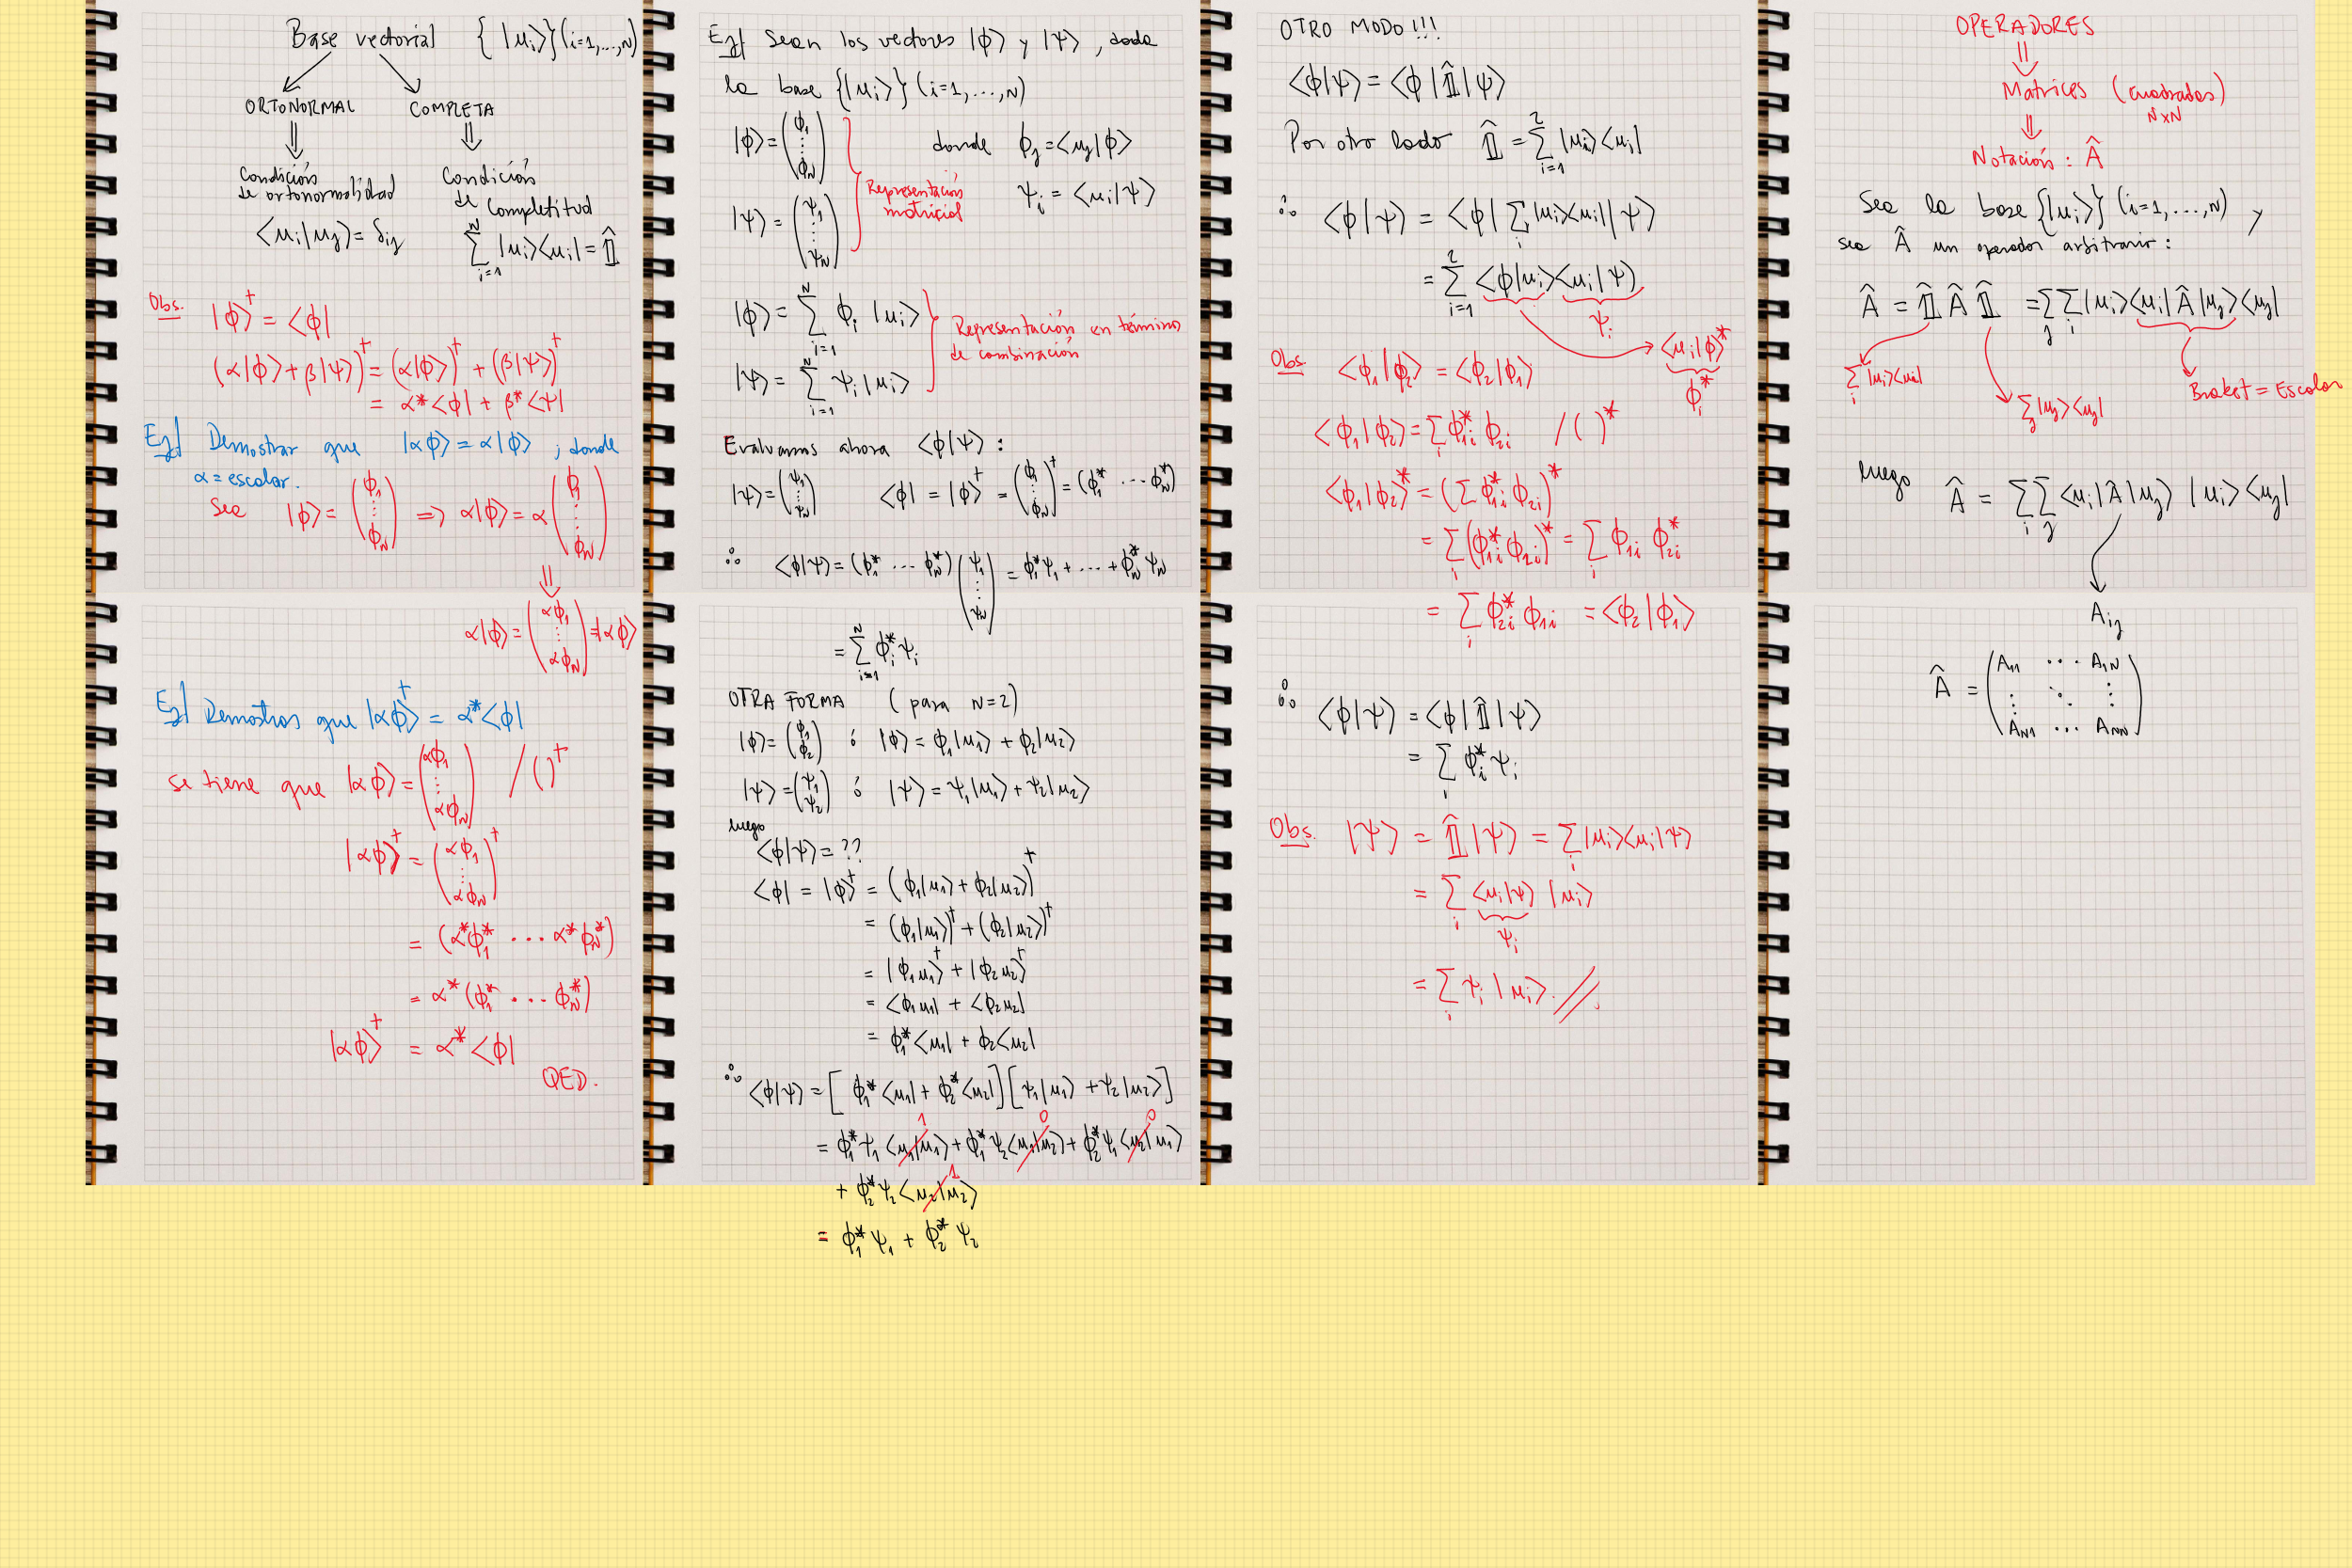 Base vectorial { |μi⟩} (i=1,...,N)
ORTONORMAL COMPLETA
⇓ ⇓
Condición de ortonormalidad
⟨μi|μj⟩ = δij
Condición de Completitud
∑_{i=1}^{N} |μi⟩⟨μi| = 𝟙̂
Obs. |ϕ⟩† = ⟨ϕ|
(α|ϕ⟩ + β|Ψ⟩)† = (α|ϕ⟩)† + (β|Ψ⟩)†
= α*⟨ϕ| + β*⟨Ψ|
Ej/ Demostrar que |αϕ⟩ = α|ϕ⟩ , donde
α = escalar.
Sea |ϕ⟩ = (ϕ1 ⋮ ϕN) ⇒ α|ϕ⟩ = α (ϕ1 ⋮ ϕN)
⇓
α|ϕ⟩ = (αϕ1 ⋮ αϕN) = |αϕ⟩
Ej/ Demostros que |αϕ⟩† = α*⟨ϕ|
se tiene que |αϕ⟩ = (αϕ1 ⋮ αϕN) / ( )†
|αϕ⟩† = (αϕ1 ⋮ αϕN)†
= (α*ϕ1* ... α*ϕN*)
= α*(ϕ1* ... ϕN*)
|αϕ⟩† = α*⟨ϕ|
QED.
Ej/ Sean los vectores |ϕ⟩ y |Ψ⟩ , dada
la base {|μi⟩} (i=1,...,N)
|ϕ⟩ = (ϕ1 ⋮ ϕN) donde ϕj = ⟨μj|ϕ⟩
|Ψ⟩ = (Ψ1 ⋮ ΨN) Ψi = ⟨μi|Ψ⟩
Representación
matricial
|ϕ⟩ = ∑_{i=1}^{N} ϕi |μi⟩
|Ψ⟩ = ∑_{i=1}^{N} Ψi |μi⟩
Representación en términos
de combinación
Evaluamos ahora ⟨ϕ|Ψ⟩ :
|Ψ⟩ = (Ψ1 ⋮ ΨN) ⟨ϕ| = |ϕ⟩† = (ϕ1 ⋮ ϕN)† = (ϕ1* ... ϕN*)
∴ ⟨ϕ|Ψ⟩ = (ϕ1* ... ϕN*) (Ψ1 ⋮ ΨN) = ϕ1*Ψ1 + ... + ϕN*ΨN
= ∑_{i=1}^{N} ϕi*Ψi
OTRA FORMA (para N=2)
|ϕ⟩ = (ϕ1 ϕ2) ó |ϕ⟩ = ϕ1|μ1⟩ + ϕ2|μ2⟩
|Ψ⟩ = (Ψ1 Ψ2) ó |Ψ⟩ = Ψ1|μ1⟩ + Ψ2|μ2⟩
luego
⟨ϕ|Ψ⟩ = ??
⟨ϕ| = |ϕ⟩† = (ϕ1|μ1⟩ + ϕ2|μ2⟩)†
= (ϕ1|μ1⟩)† + (ϕ2|μ2⟩)†
= |ϕ1μ1⟩† + |ϕ2μ2⟩†
= ⟨ϕ1μ1| + ⟨ϕ2μ2|
= ϕ1*⟨μ1| + ϕ2⟨μ2|
∴ ⟨ϕ|Ψ⟩ = [ϕ1*⟨μ1| + ϕ2*⟨μ2|][Ψ1|μ1⟩ + Ψ2|μ2⟩]
1 0 0
= ϕ1*Ψ1⟨μ1|μ1⟩ + ϕ1*Ψ2⟨μ1|μ2⟩ + ϕ2*Ψ1⟨μ2|μ1⟩
1
+ ϕ2*Ψ2⟨μ2|μ2⟩
= ϕ1*Ψ1 + ϕ2*Ψ2
OTRO MODO!!!
⟨ϕ|Ψ⟩ = ⟨ϕ|𝟙̂|Ψ⟩
Por otro lado 𝟙̂ = ∑_{i=1}^{2} |μi⟩⟨μi|
∴ ⟨ϕ|Ψ⟩ = ⟨ϕ| ∑_i |μi⟩⟨μi| |Ψ⟩
= ∑_{i=1}^{2} ⟨ϕ|μi⟩⟨μi|Ψ⟩
Ψi
⟨μi|ϕ⟩*
ϕi*
Obs. ⟨ϕ1|ϕ2⟩* = ⟨ϕ2|ϕ1⟩
⟨ϕ1|ϕ2⟩ = ∑_i ϕ1i* ϕ2i / ( )*
⟨ϕ1|ϕ2⟩* = (∑ ϕ1i* ϕ2i)*
= ∑_i (ϕ1i* ϕ2i)* = ∑_i ϕ1i ϕ2i*
= ∑_i ϕ2i* ϕ1i = ⟨ϕ2|ϕ1⟩
∴ ⟨ϕ|Ψ⟩ = ⟨ϕ|𝟙̂|Ψ⟩
= ∑_i ϕi*Ψi
Obs. |Ψ⟩ = 𝟙̂|Ψ⟩ = ∑_i |μi⟩⟨μi|Ψ⟩
= ∑_i ⟨μi|Ψ⟩ |μi⟩
Ψi
= ∑_i Ψi |μi⟩ //
OPERADORES
⇓
Matrices (cuadradas)
N×N
⇓
Notación : Â
Sea la base {|μi⟩} (i=1,...,N) y
sea Â un operador arbitrario :
Â = 𝟙̂ Â 𝟙̂ = ∑_j ∑_i |μi⟩⟨μi|Â|μj⟩⟨μj|
∑_i |μi⟩⟨μi|
∑_j |μj⟩⟨μj|
Braket = Escalar
luego Â = ∑_i ∑_j ⟨μi|Â|μj⟩ |μi⟩⟨μj|
Aij
Â = (A11 ... A1N ⋮ ⋱ ⋮ AN1 ... ANN)